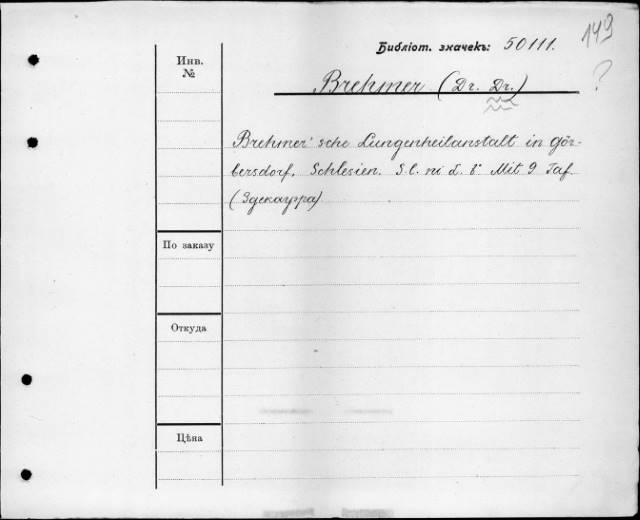 149
Библіот. значекъ: 50111.
Инв.
№
Brehmer (Dr. Dr.)
?
Brehmer'sche Lungenheilanstalt in Gör-
bersdorf, Schlesien. S. l. ni d. 8° Mit 9 Taf.
(Здекауэра)
По заказу
Откуда
Цѣна